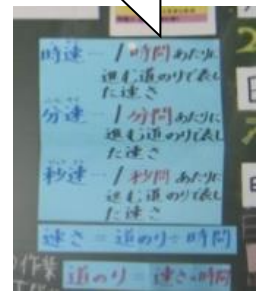 時速… 1時間あたりに
進む道のりで表し
た速さ
分速… 1分間あたりに
進む道のりで表し
た速さ
秒速… 1秒間あたりに
進む道のりで表し
た速さ
速さ = 道のり÷時間
道のり = 速さ×時間
作業